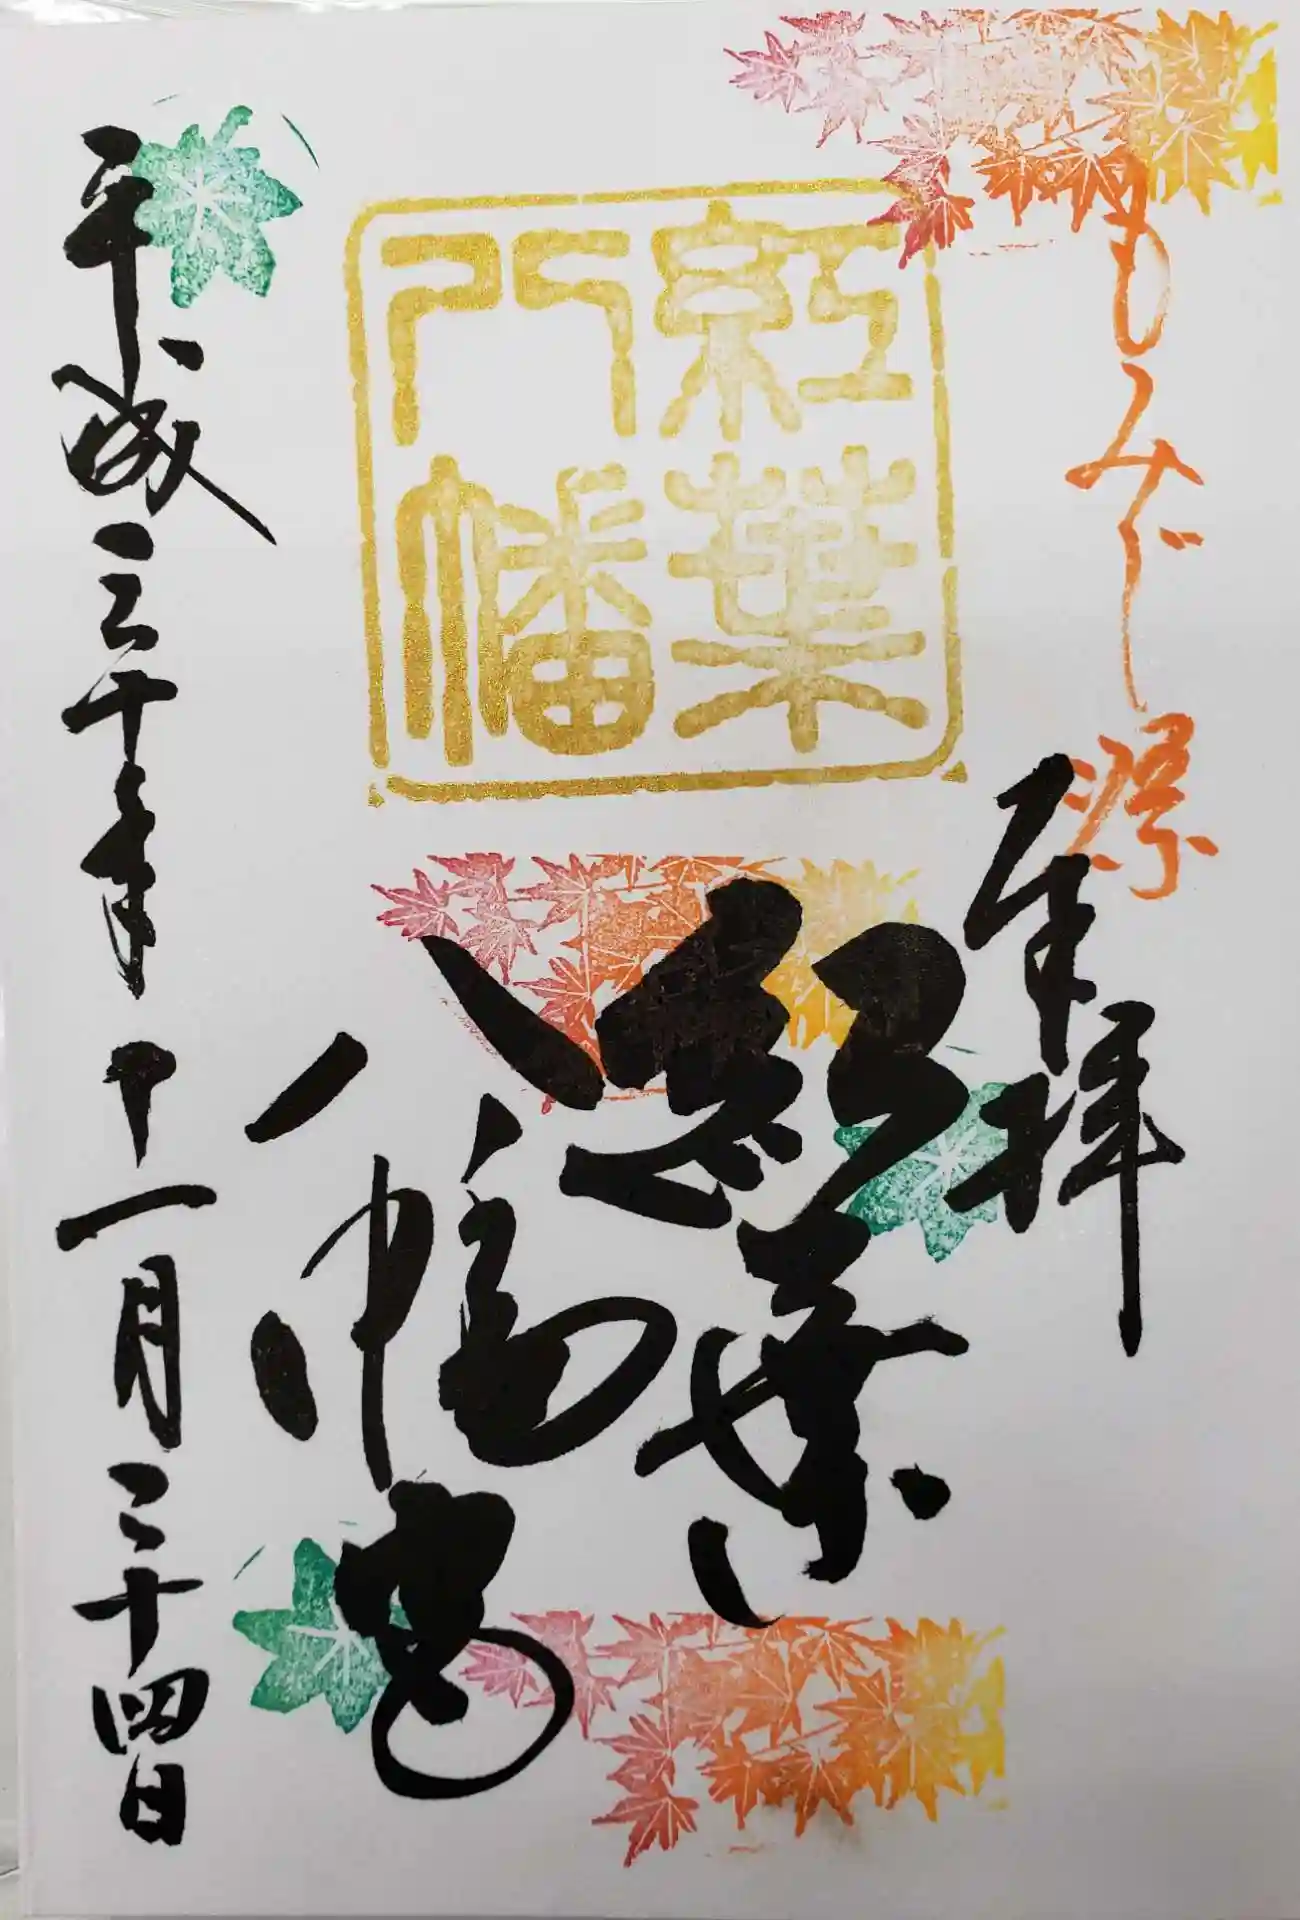 もみじ祭
奉拝
紅葉
八幡宮
紅葉
八幡
平成三十年十一月二十四日